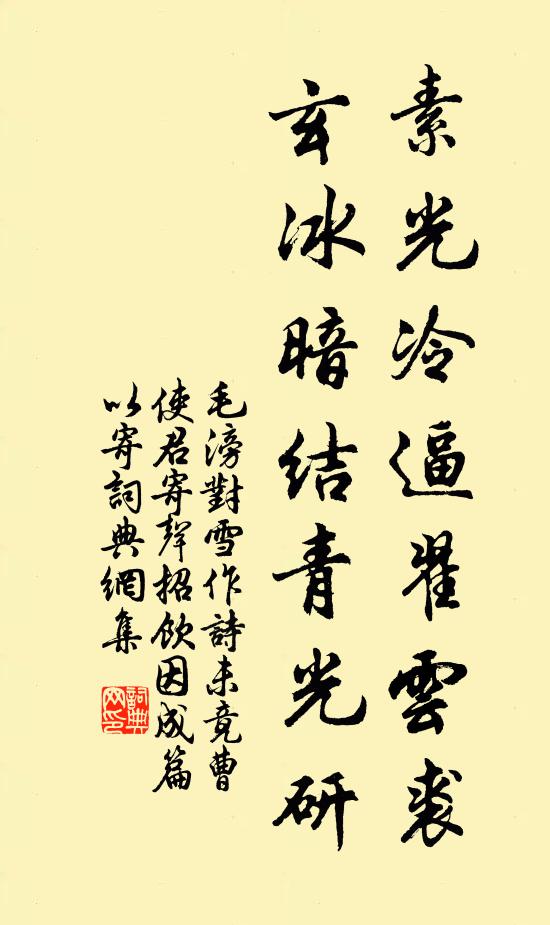 素光冷逼翠雲裘
玄冰暗結青光研
毛滂對雪作詩未竟曹
使君寄聲招飲因成篇
以寄詞典網集
詞典網印